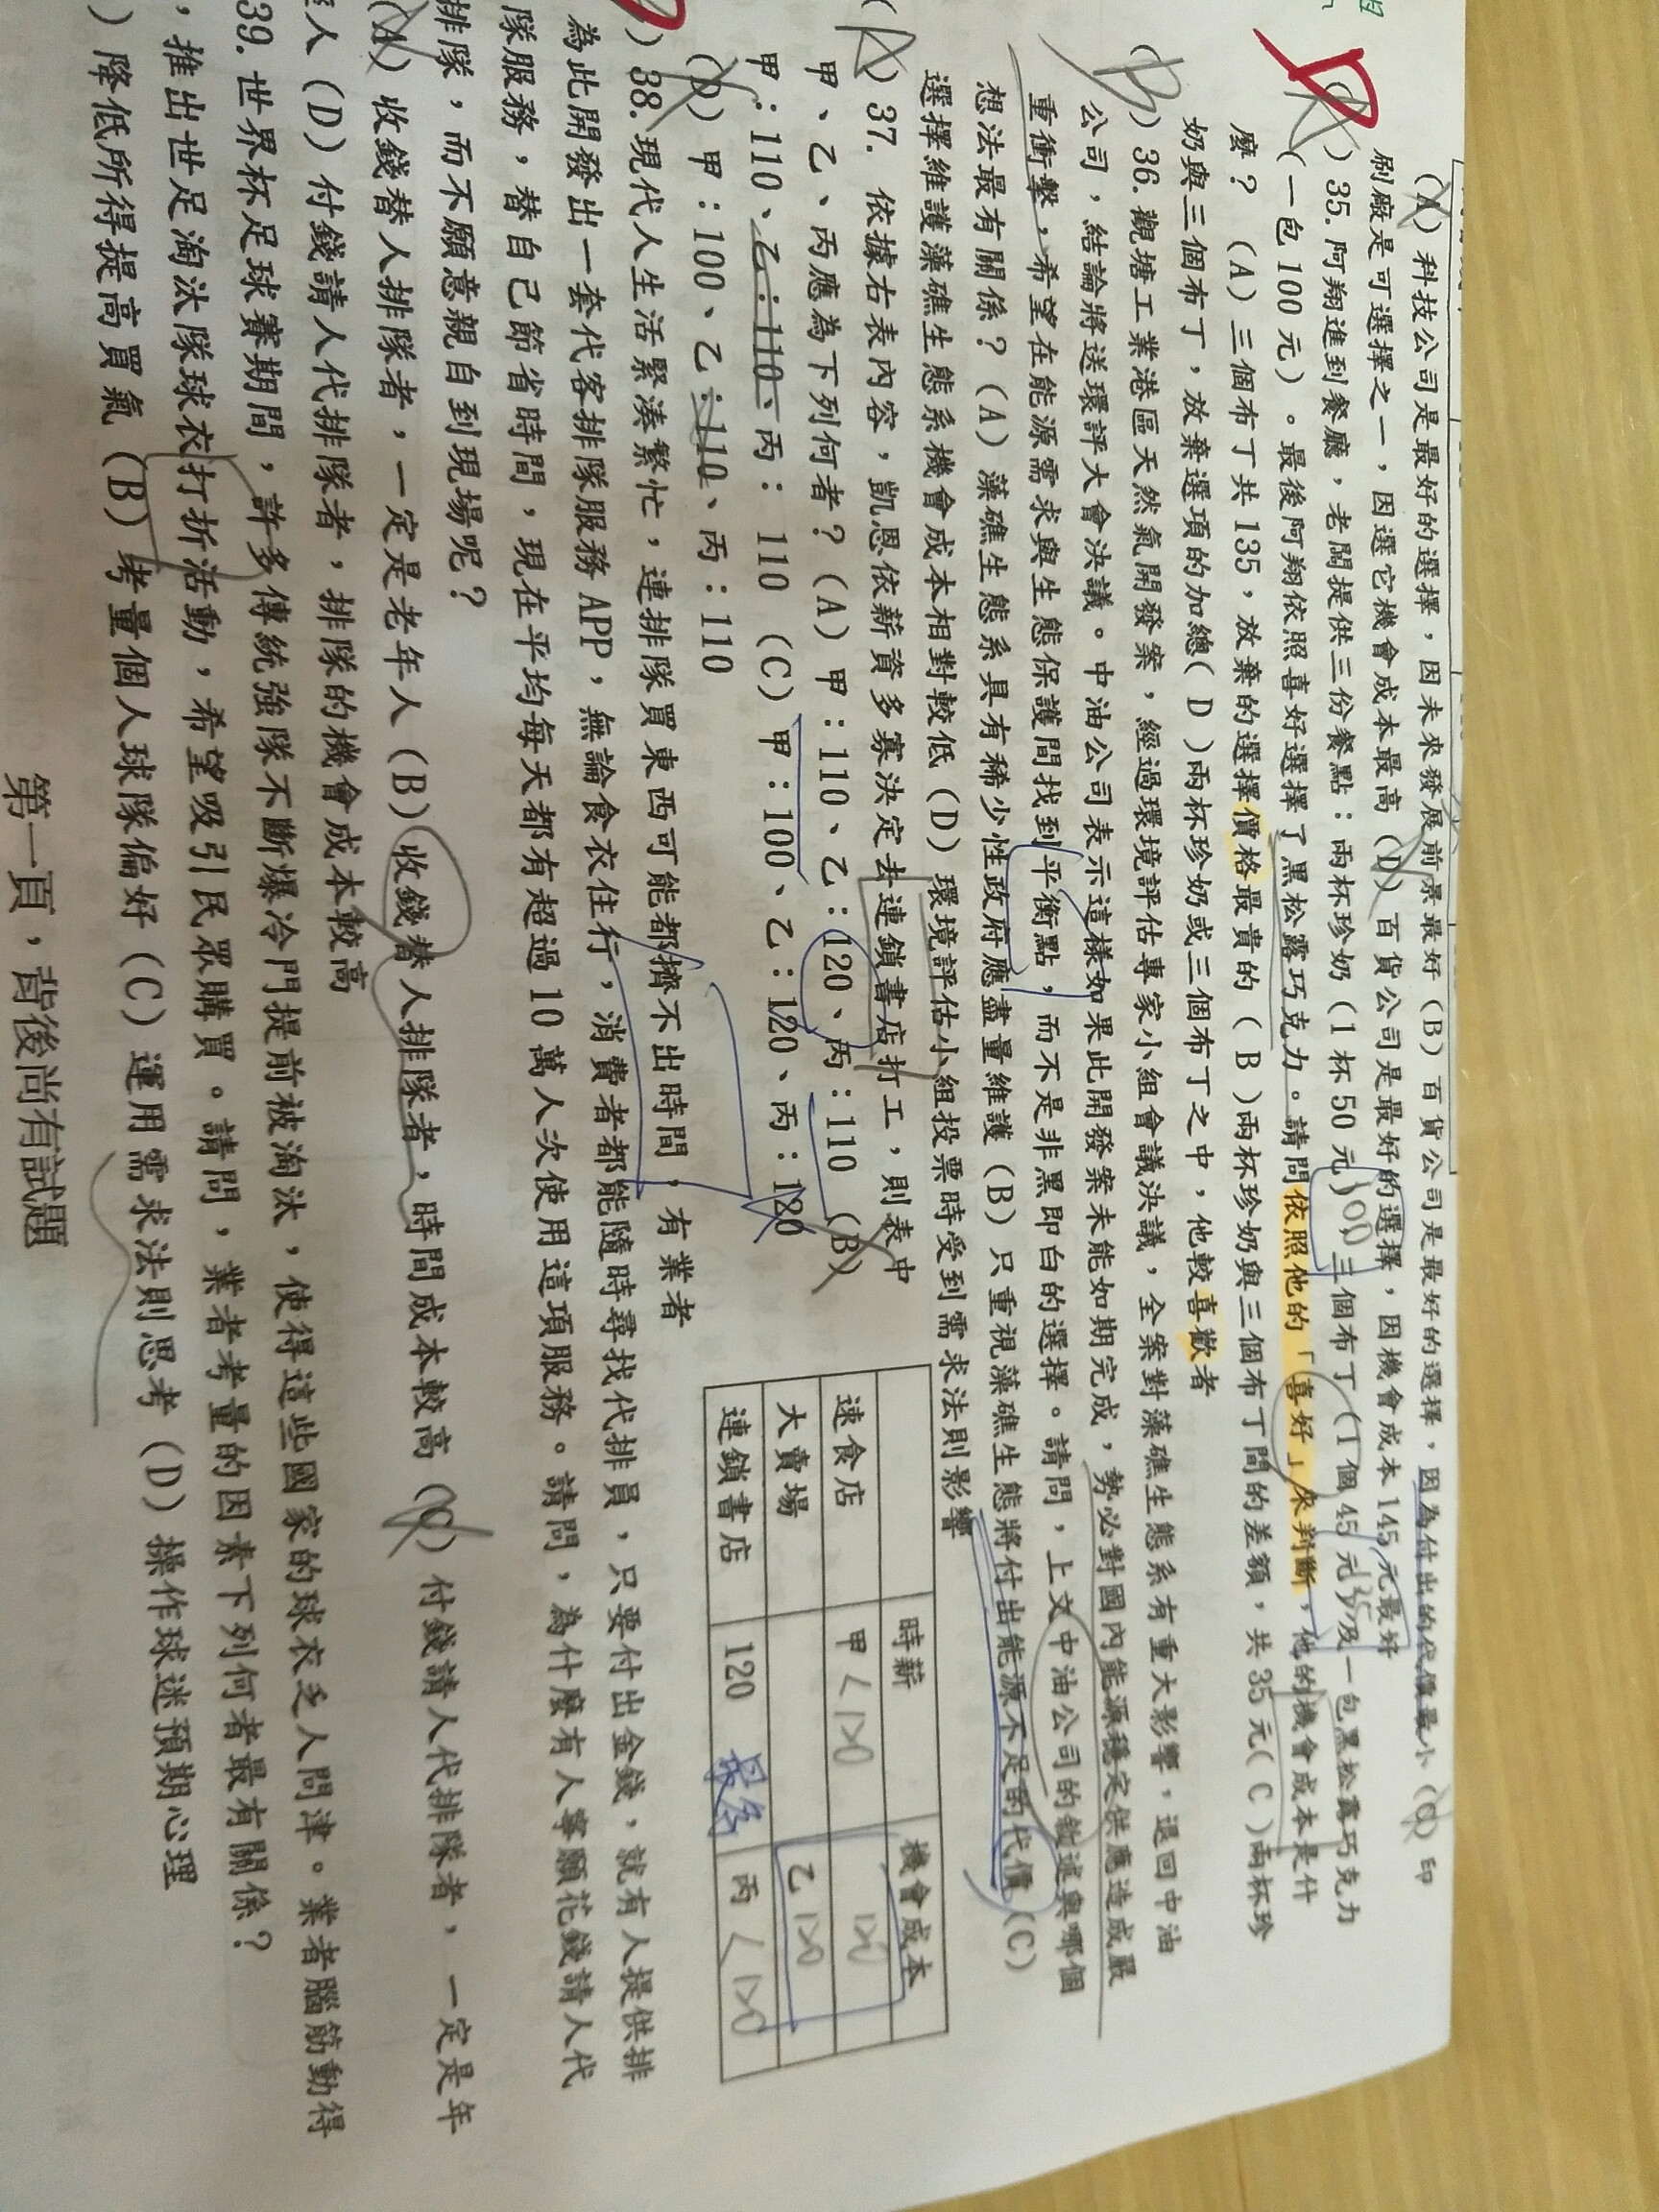 (A) 科技公司是最好的選擇，因未來發展前景最好 (B) 百貨公司是最好的選擇，因為付出的代價最小 (C) 印
刷廠是可選擇之一，因選它機會成本最高 (D) 百貨公司是最好的選擇，因機會成本 145 元最好
) 35. 阿翔進到餐廳，老闆提供三份餐點：兩杯珍奶 (1 杯 50 元) 100 三個布丁 (1 個 45 元) 135 及一包黑松露巧克力
(一包 100 元)。最後阿翔依照喜好選擇了黑松露巧克力。請問依照他的「喜好」來判斷，他的機會成本是什
麼？ (A) 三個布丁共 135，放棄的選擇價格最貴的 ( B )兩杯珍奶與三個布丁間的差額，共 35 元( C )兩杯珍
奶與三個布丁，放棄選項的加總( D )兩杯珍奶或三個布丁之中，他較喜歡者
(B) 36. 觀塘工業港區天然氣開發案，經過環境評估專家小組會議決議，全案對藻礁生態系有重大影響，退回中油
公司，結論將送環評大會決議。中油公司表示這樣如果此開發案未能如期完成，勢必對國內能源穩定供應造成嚴
重衝擊，希望在能源需求與生態保護間找到平衡點，而不是非黑即白的選擇。請問，上文中油公司的敘述與哪個
想法最有關係？ (A) 藻礁生態系具有稀少性政府應盡量維護 (B) 只重視藻礁生態將付出能源不足的代價 (C)
選擇維護藻礁生態系機會成本相對較低 (D) 環境評估小組投票時受到需求法則影響
(A) 37. 依據右表內容，凱恩依薪資多寡決定去連鎖書店打工，則表中
甲、乙、丙應為下列何者？ (A) 甲：110、乙：120、丙：110 (B)
甲：110、乙：110、丙：110 (C) 甲：100、乙：120、丙：120
(D) 甲：100、乙：110、丙：110
時薪 機會成本
速食店 甲 <120 120
大賣場 乙 120
連鎖書店 120 最多 丙 <120
) 38. 現代人生活緊湊繁忙，連排隊買東西可能都擠不出時間，有業者
為此開發出一套代客排隊服務 APP，無論食衣住行，消費者都能隨時尋找代排員，只要付出金錢，就有人提供排
隊服務，替自己節省時間，現在平均每天都有超過 10 萬人次使用這項服務。請問，為什麼有人寧願花錢請人代
排隊，而不願意親自到現場呢？
(A) 收錢替人排隊者，一定是老年人 (B) 收錢替人排隊者，時間成本較高 (C) 付錢請人代排隊者，一定是年
人 (D) 付錢請人代排隊者，排隊的機會成本較高
39. 世界杯足球賽期間，許多傳統強隊不斷爆冷門提前被淘汰，使得這些國家的球衣乏人問津。業者腦筋動得
，推出世足淘汰隊球衣打折活動，希望吸引民眾購買。請問，業者考量的因素下列何者最有關係？
) 降低所得提高買氣 (B) 考量個人球隊偏好 (C) 運用需求法則思考 (D) 操作球迷預期心理
第一頁，背後尚有試題